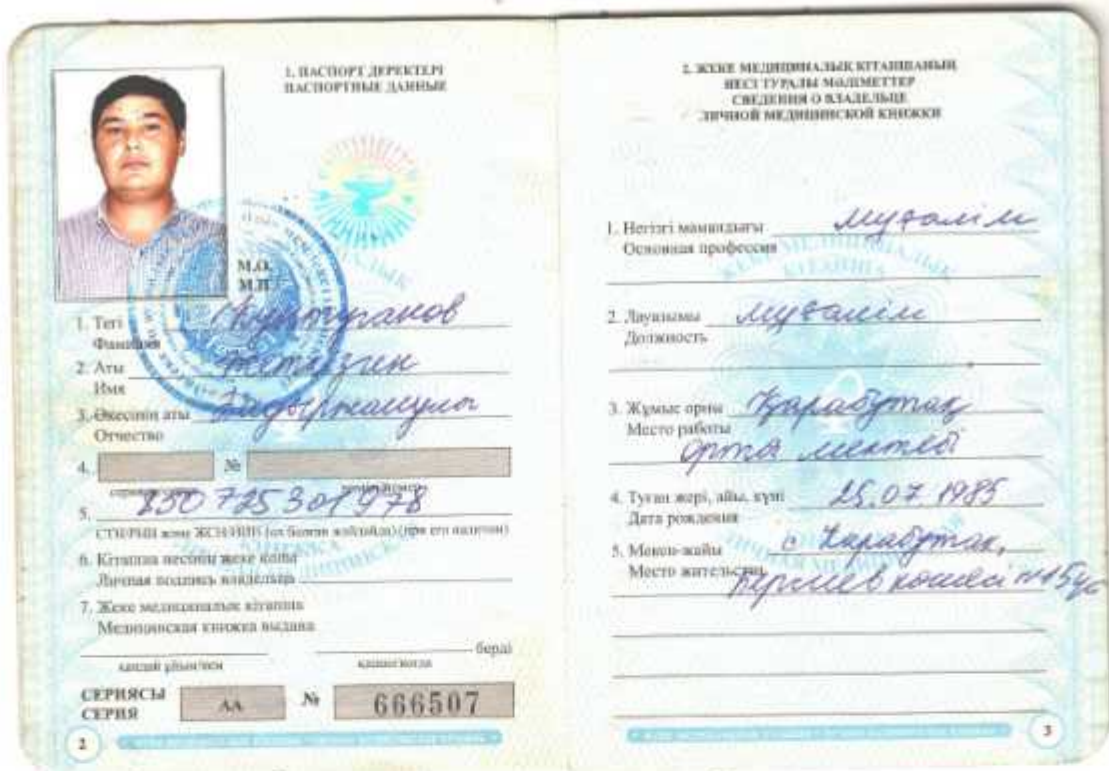 1. ПАСПОРТ ДЕРЕКТЕРІ
ПАСПОРТНЫЕ ДАННЫЕ
М.О.
М.П.
1. Тегі
Фамилия
2. Аты
Имя
3. Әкесінің аты
Отчество
4. №
5. 850725301978
6. Кітапша иесінің жеке қолы
Личная подпись владельца
7. Жеке медициналық кітапша
Медицинская книжка выдана
берді
СЕРИЯСЫ
СЕРИЯ АА № 666507
2
2. ЖЕКЕ МЕДИЦИНАЛЫҚ КІТАПШАНЫҢ
ИЕСІ ТУРАЛЫ МӘЛІМЕТТЕР
СВЕДЕНИЯ О ВЛАДЕЛЬЦЕ
ЛИЧНОЙ МЕДИЦИНСКОЙ КНИЖКИ
1. Негізгі мамандығы мұғалім
Основная профессия
2. Лауазымы мұғалім
Должность
3. Жұмыс орны Қарабұтақ
Место работы
орта мектебі
4. Туған жері, айы, күні 25.07.1985
Дата рождения
5. Мекен-жайы с Қарабұтақ,
Место жительства көшесі
3